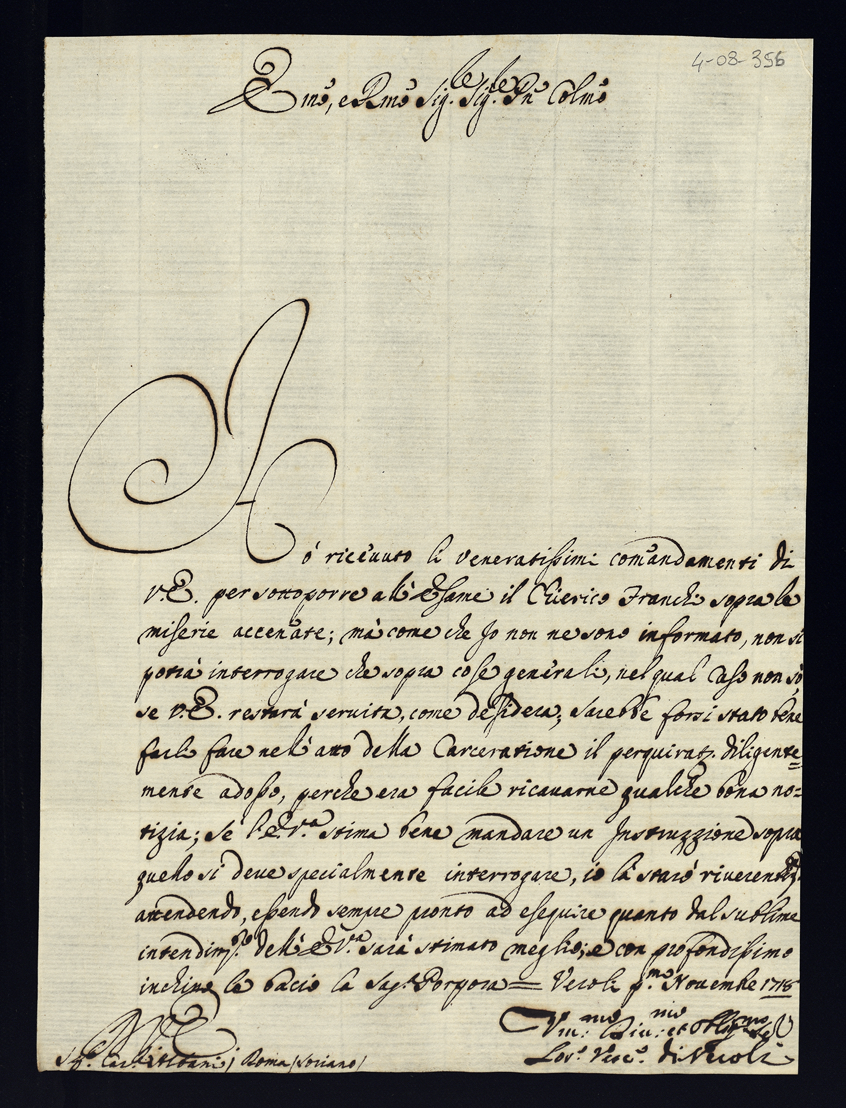 4-08-356
Emo, e Rmo Sig.le Sig.le Pne Colmo
Hó riceuuto li Veneratissimi comandamenti di
V.E. per sottoporre all'Esame il Chierico Franchi sopra le
miserie accenate; má come che Io non ne sono informato, non si
potrà interrogare che sopra cose generali, nel qual caso non só
se V.E. restará seruita, come desidera; sarebbe forsi stato bene
farli fare nell'atto della Carceratione il perquirat. diligente=
mente adosso, perche era facile ricauarne qualche bona no=
tizia; se l'E.V.ra stima bene mandare un Instruzzione sopra
quello si deve specialmente interrogare, io la staró riverente
attendendo, essendo sempre pronto ad eseguire quanto dal sublime
intendim.to dell'E.V.ra sará stimato meglio; e con profondissimo
inchino le bacio la Sag.a Porpora = Veroli p.mo Novembre 1718
Vm.mo Diu.mo et Obl.mo Se.
Lor.o Vesc.o di Veroli
Sig.r Car.l Albani / Roma / Soriano /